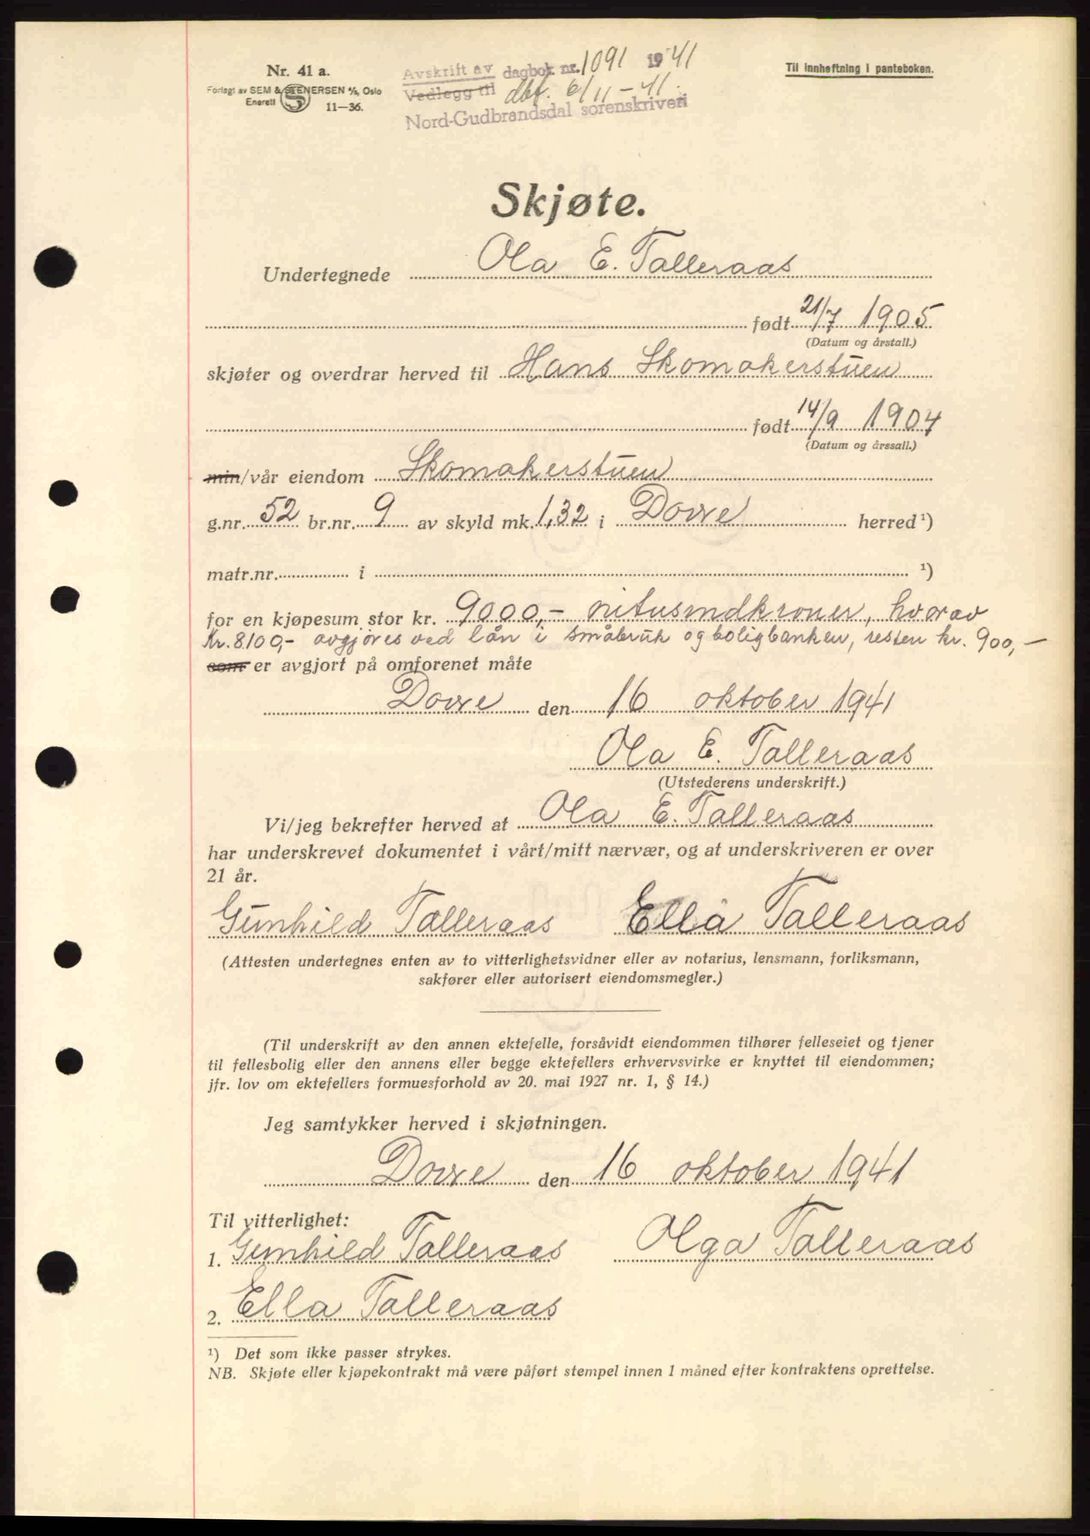 Nr. 41 a.
Forlagt av SEM & STENERSEN A/S, Oslo
Enerett S 11—36.
Avskrift av dagbok nr. 1091 1941
Vedlegg til dbf. 6/11 - 41.
Nord-Gudbrandsdal sorenskriveri
Til innheftning i panteboken.
Skjøte.
Undertegnede Ola E. Talleraas
født 21/7 1905
(Datum og årstall.)
skjøter og overdrar herved til Hans Skomakerstuen
født 14/9 1904
(Datum og årssall.)
min/vår eiendom Skomakerstuen
g.nr. 52 br.nr. 9 av skyld mk. 1,32 i Dovre herred ¹)
matr.nr. i ¹)
for en kjøpesum stor kr. 9000,- nitusindkroner, hvorav
kr. 8100,- avgjøres ved lån i småbruk og boligbanken, resten kr. 900,-
som er avgjort på omforenet måte
Dovre den 16 oktober 1941
Ola E. Talleraas
(Utstederens underskrift.)
Vi/jeg bekrefter herved at Ola E. Talleraas
har underskrevet dokumentet i vårt/mitt nærvær, og at underskriveren er over
21 år.
Gunhild Talleraas Ella Talleraas
(Attesten undertegnes enten av to vitterlighetsvidner eller av notarius, lensmann, forliksmann,
sakfører eller autorisert eiendomsmegler.)
(Til underskrift av den annen ektefelle, forsåvidt eiendommen tilhører felleseiet og tjener
til fellesbolig eller den annens eller begge ektefellers erhvervsvirke er knyttet til eiendommen;
jfr. lov om ektefellers formuesforhold av 20. mai 1927 nr. 1, § 14.)
Jeg samtykker herved i skjøtningen.
Dovre den 16 oktober 1941
Til vitterlighet:
1. Gunhild Talleraas Olga Talleraas
2. Ella Talleraas
¹) Det som ikke passer strykes.
NB. Skjøte eller kjøpekontrakt må være påført stempel innen 1 måned efter kontraktens oprettelse.